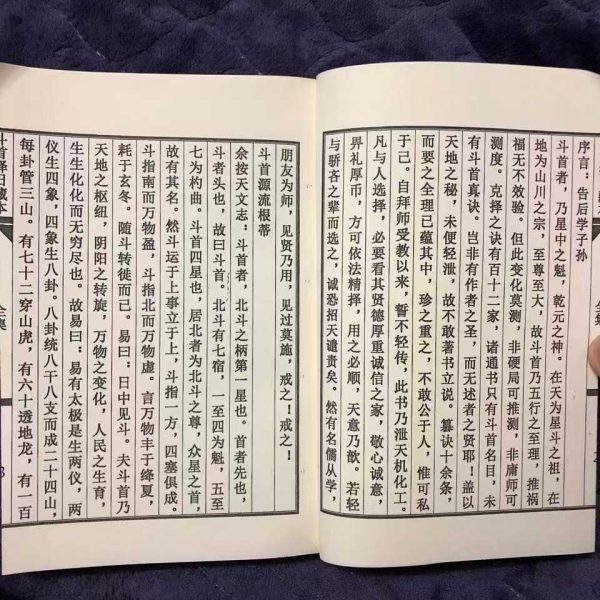 序言：告后学子孙
斗首者，乃星中之魁，乾元之神。在天为星斗之祖，在
地为山川之宗，至尊至大，故斗首乃五行之至理，推祸
福无不效验。但此变化莫测，非硬局可推测，非庸师可
测度。克择之诀有百十二家，诸通书只有斗首名目，未
有斗首真诀。岂非有作者之圣，而无述者之贤耶！盖以
天地之秘，未便轻泄，故不敢著书立说。篡诀十余条，
而要之全理已蕴其中，珍之重之，不敢公于人，惟可私
于己。自拜师受教以来，誓不轻传，此书乃泄天机化工。
凡与人选择，必要看其贤德厚重诚信之家，敬心诚意，
畀礼厚币，方可依法精择，用之必顺，天意乃歆。若轻
与骄吝之辈而选之，诚恐招天谴责矣。然有名儒从学，
朋友为师，见贤乃用，见过莫施，戒之！戒之！
斗首源流根蒂
余按天文志：斗首者，北斗之柄第一星也。首者先也，
斗者头也，故曰斗首。北斗有七宿，一至四为魁，五至
七为杓曲。斗首四星也，居北者为北斗之尊，众星之首，
故有其名。然斗运于上事立于上，斗指一方，四塞俱成。
斗指南而万物盈，斗指北而万物虚。言万物丰于绛夏，
耗于玄冬。随斗转徙而已。易曰：日中见斗。夫斗首乃
天地之枢纽，阴阳之转旋，万物之变化，人民之生育，
生生化化而无穷尽也。故易曰：易有太极是生两仪，两
仪生四象，四象生八卦。八卦统八干八支而成二十四山，
每卦管三山。有七十二穿山虎，有六十透地龙，有一百
斗首择日藏本
全集